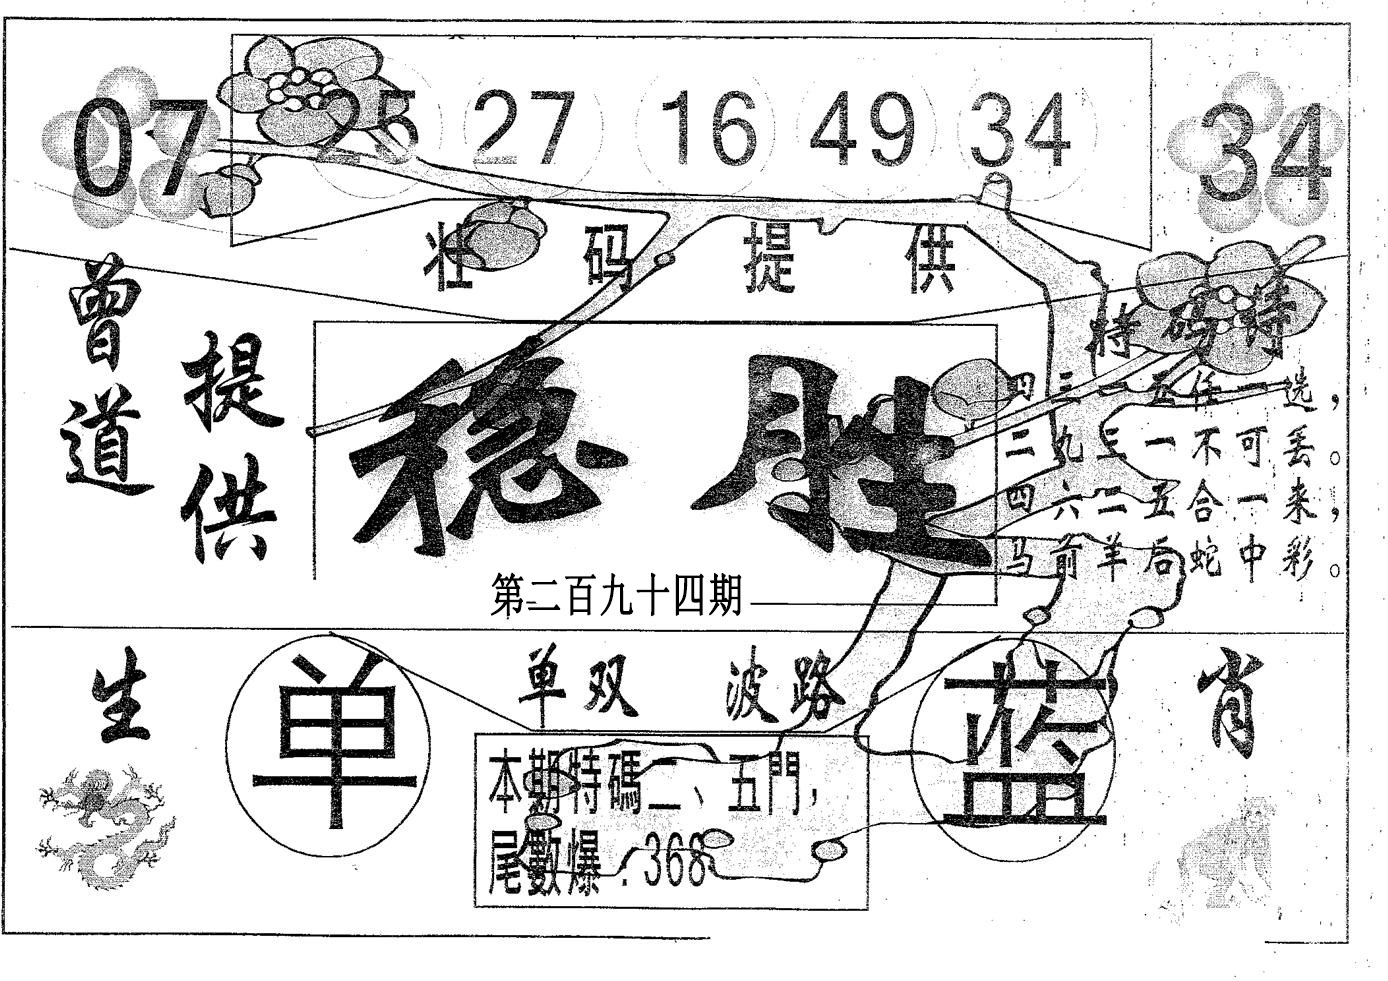 07 25 27 16 49 34 34
壮码提供
曾道
提供
稳胜
第二百九十四期
特码诗
四三一五任一选，
二九三一不可丢。
四六二五合一来，
马前羊后蛇中彩。
生
单
单双 波路
蓝
肖
本期特碼二、五門，
尾數爆：368